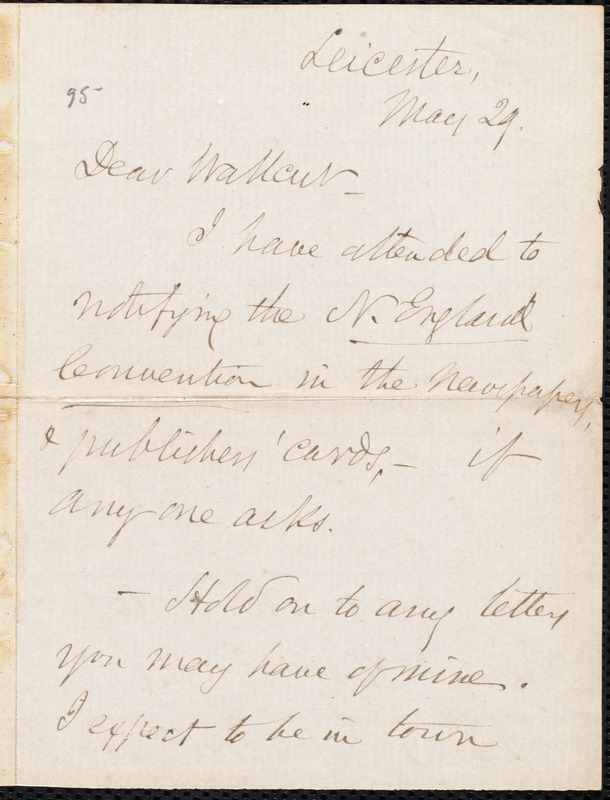 Leicester,
95
May 29.
Dear Wallcut –
I have attended to
notifying the N. England
Convention in the Newspapers,
& publishers' cards, – if
any one asks.
– Hold on to any letters
you may have of mine.
I expect to be in town